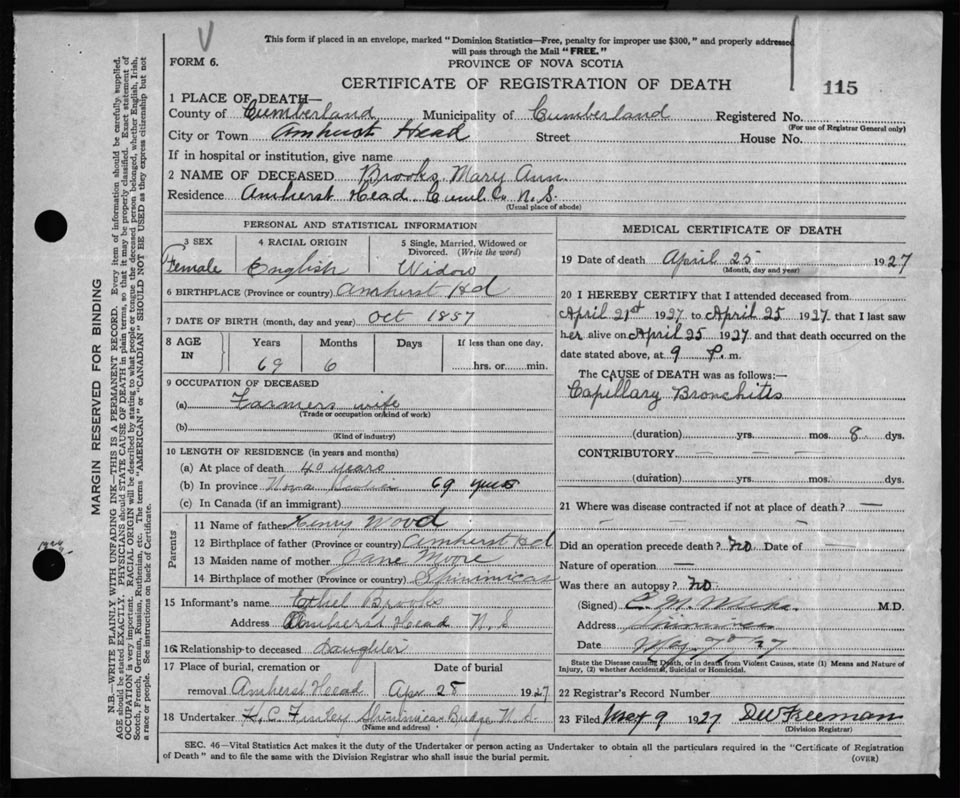 This form if placed in an envelope, marked "Dominion Statistics—Free, penalty for improper use $300," and properly addressed
will pass through the Mail "FREE."
FORM 6.
PROVINCE OF NOVA SCOTIA
CERTIFICATE OF REGISTRATION OF DEATH
115
1 PLACE OF DEATH—
County of Cumberland Municipality of Cumberland Registered No.
(For use of Registrar General only)
City or Town Amherst Head Street House No.
If in hospital or institution, give name
2 NAME OF DECEASED Brooks Mary Ann
Residence Amherst Head Cuml. Co N.S.
(Usual place of abode)
PERSONAL AND STATISTICAL INFORMATION
3 SEX 4 RACIAL ORIGIN 5 Single, Married, Widowed or
Divorced. (Write the word)
Female English Widow
6 BIRTHPLACE (Province or country) Amherst Hd
7 DATE OF BIRTH (month, day and year) Oct 1857
8 AGE IN Years Months Days If less than one day,
69 6 hrs. or min.
9 OCCUPATION OF DECEASED
(a) Farmers wife
(Trade or occupation or kind of work)
(b)
(Kind of industry)
10 LENGTH OF RESIDENCE (in years and months)
(a) At place of death 40 years
(b) In province Nova Scotia 69 years
(c) In Canada (if an immigrant)
Parents
11 Name of father Henry Wood
12 Birthplace of father (Province or country) Amherst Hd
13 Maiden name of mother Jane Moore
14 Birthplace of mother (Province or country) Shinimicas
15 Informant's name Ethel Brooks
Address Amherst Head N.S
16 Relationship to deceased Daughter
17 Place of burial, cremation or Date of burial
removal Amherst Head Apr 28 1927
18 Undertaker H. C. Finley Shinimicas Bridge N.S.
(Name and address)
MEDICAL CERTIFICATE OF DEATH
19 Date of death April 25 1927
(Month, day and year)
20 I HEREBY CERTIFY that I attended deceased from
April 21st 1927 to April 25 1927 that I last saw
her alive on April 25 1927 and that death occurred on the
date stated above, at 9 P. m.
The CAUSE of DEATH was as follows:—
Capillary Bronchitis
(duration) yrs. mos. 8 dys.
CONTRIBUTORY — — —
(duration) yrs. mos. dys.
21 Where was disease contracted if not at place of death? —
Did an operation precede death? no Date of —
Nature of operation —
Was there an autopsy? no
(Signed) M.D.
Address Shinimicas
Date May 7th 27
State the Disease causing Death, or in death from Violent Causes, state (1) Means and Nature of
Injury, (2) whether Accidental, Suicidal or Homicidal.
22 Registrar's Record Number
23 Filed May 9 1927 DW Freeman
(Division Registrar)
SEC. 46—Vital Statistics Act makes it the duty of the Undertaker or person acting as Undertaker to obtain all the particulars required in the "Certificate of Registration
of Death" and to file the same with the Division Registrar who shall issue the burial permit.
(OVER)
MARGIN RESERVED FOR BINDING
N.B.—WRITE PLAINLY WITH UNFADING INK—THIS IS A PERMANENT RECORD. Every item of information should be carefully supplied.
AGE should be stated EXACTLY. PHYSICIANS should STATE CAUSE OF DEATH in plain terms, so that it may be properly classified. Exact statement of
OCCUPATION is very important. RACIAL ORIGIN will be described by stating to what people or tongue the deceased person belonged, whether English, Irish,
Scotch, French, German, Russian, Ruthenian, etc. The terms "AMERICAN" or "CANADIAN" SHOULD NOT BE USED as they express citizenship but not
a race or people. See instructions on back of Certificate.